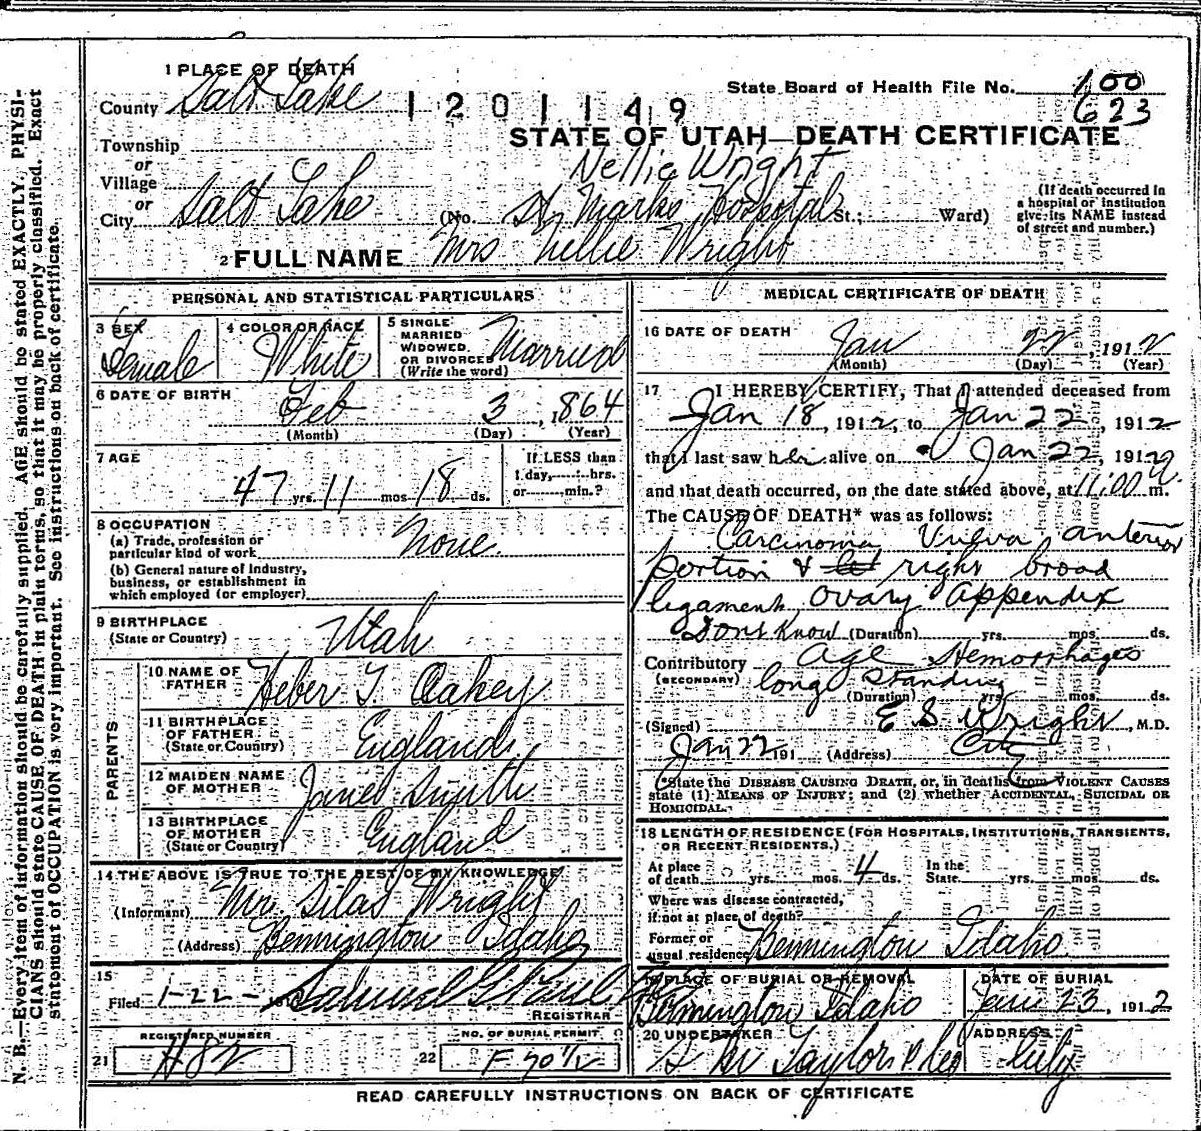 1 PLACE OF DEATH
County Salt Lake
1201149
State Board of Health File No. 100
623
STATE OF UTAH—DEATH CERTIFICATE
Township
or
Village
or
City Salt Lake
Nellie Wright
(No. St Marks Hospital St.; Ward)
(If death occurred in
a hospital or institution
give its NAME instead
of street and number.)
2 FULL NAME Mrs Nellie Wright
PERSONAL AND STATISTICAL PARTICULARS
3 SEX
Female
4 COLOR OR RACE
White
5 SINGLE
MARRIED
WIDOWED
OR DIVORCED
(Write the word)
Married
6 DATE OF BIRTH
Feb 3, 1864
(Month) (Day) (Year)
7 AGE
47 yrs. 11 mos 18 ds.
If LESS than
1 day, hrs.
or min.?
8 OCCUPATION
(a) Trade, profession or
particular kind of work None
(b) General nature of Industry,
business, or establishment in
which employed (or employer)
9 BIRTHPLACE
(State or Country) Utah
PARENTS
10 NAME OF
FATHER Heber T. Oakey
11 BIRTHPLACE
OF FATHER
(State or Country) England
12 MAIDEN NAME
OF MOTHER Smith
13 BIRTHPLACE
OF MOTHER
(State or Country) England
14 THE ABOVE IS TRUE TO THE BEST OF MY KNOWLEDGE
(Informant) Mr. Silas Wright
(Address) Bennington Idaho
15
Filed 1-22-191 Samuel G. Paul
REGISTRAR
REGISTERED NUMBER
21
NO. OF BURIAL PERMIT
22
MEDICAL CERTIFICATE OF DEATH
16 DATE OF DEATH
Jan 22, 1912
(Month) (Day) (Year)
17 I HEREBY CERTIFY, That I attended deceased from
Jan 18, 1912, to Jan 22, 1912
that I last saw her alive on Jan 22, 1912
and that death occurred, on the date stated above, at 11:00 m.
The CAUSE OF DEATH* was as follows:
Carcinoma Vulva anterior
portion & right broad
ligament, ovary Appendix
Dont Know (Duration) yrs. mos. ds.
Contributory Age Hemorrhages
(SECONDARY) long standing
(Duration) yrs. mos. ds.
(Signed) E S Wright, M.D.
Jan 22 191 (Address) City
*State the DISEASE CAUSING DEATH, or, in deaths from VIOLENT CAUSES
state (1) MEANS OF INJURY; and (2) whether ACCIDENTAL, SUICIDAL OR
HOMICIDAL.
18 LENGTH OF RESIDENCE (FOR HOSPITALS, INSTITUTIONS, TRANSIENTS,
OR RECENT RESIDENTS.)
At place
of death yrs. mos. 4 ds.
In the
State yrs. mos. ds.
Where was disease contracted,
if not at place of death?
Former or
usual residence Bennington Idaho
19 PLACE OF BURIAL OR REMOVAL
Bennington Idaho
DATE OF BURIAL
Jan 23, 1912
20 UNDERTAKER
Taylor & Co
ADDRESS
City
READ CAREFULLY INSTRUCTIONS ON BACK OF CERTIFICATE
N. B.—Every item of information should be carefully supplied. AGE should be stated EXACTLY. PHYSI-
CIANS should state CAUSE OF DEATH in plain terms, so that it may be properly classified. Exact
statement of OCCUPATION is very important. See instructions on back of certificate.